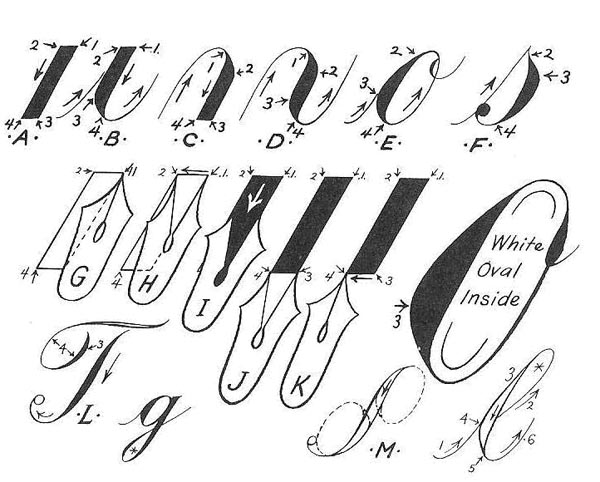 2 1 2 1 1 2 1 2 3 2 3 2 3
4 3 3 4 4 3 4 4 4
·A· ·B· ·C· ·D· ·E· ·F·
2 1 2 .1. 2 .1. 2 .1. 2 .1.
White
Oval
Inside
4 G 4 H I 4 3 4 3
3
J K
T 4 3 3 *
* ·L· g * ·M· 1 4 2 5 6